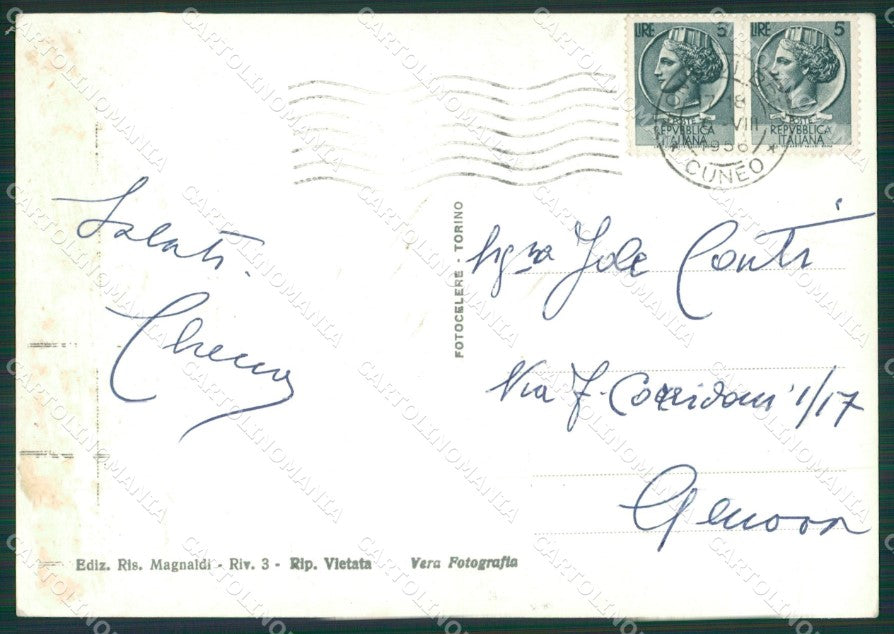 LIRE 5
REPVBBLICA
ITALIANA
LIRE 5
POSTE
REPVBBLICA
ITALIANA
18
VIII
1956
CUNEO
Saluti.
FOTOCELERE - TORINO
Sig.ra Jole Conti
Via F. Corridoni 1/17
Genova
Ediz. Ris. Magnaldi - Riv. 3 - Rip. Vietata Vera Fotografia
CARTOLINOMANIA